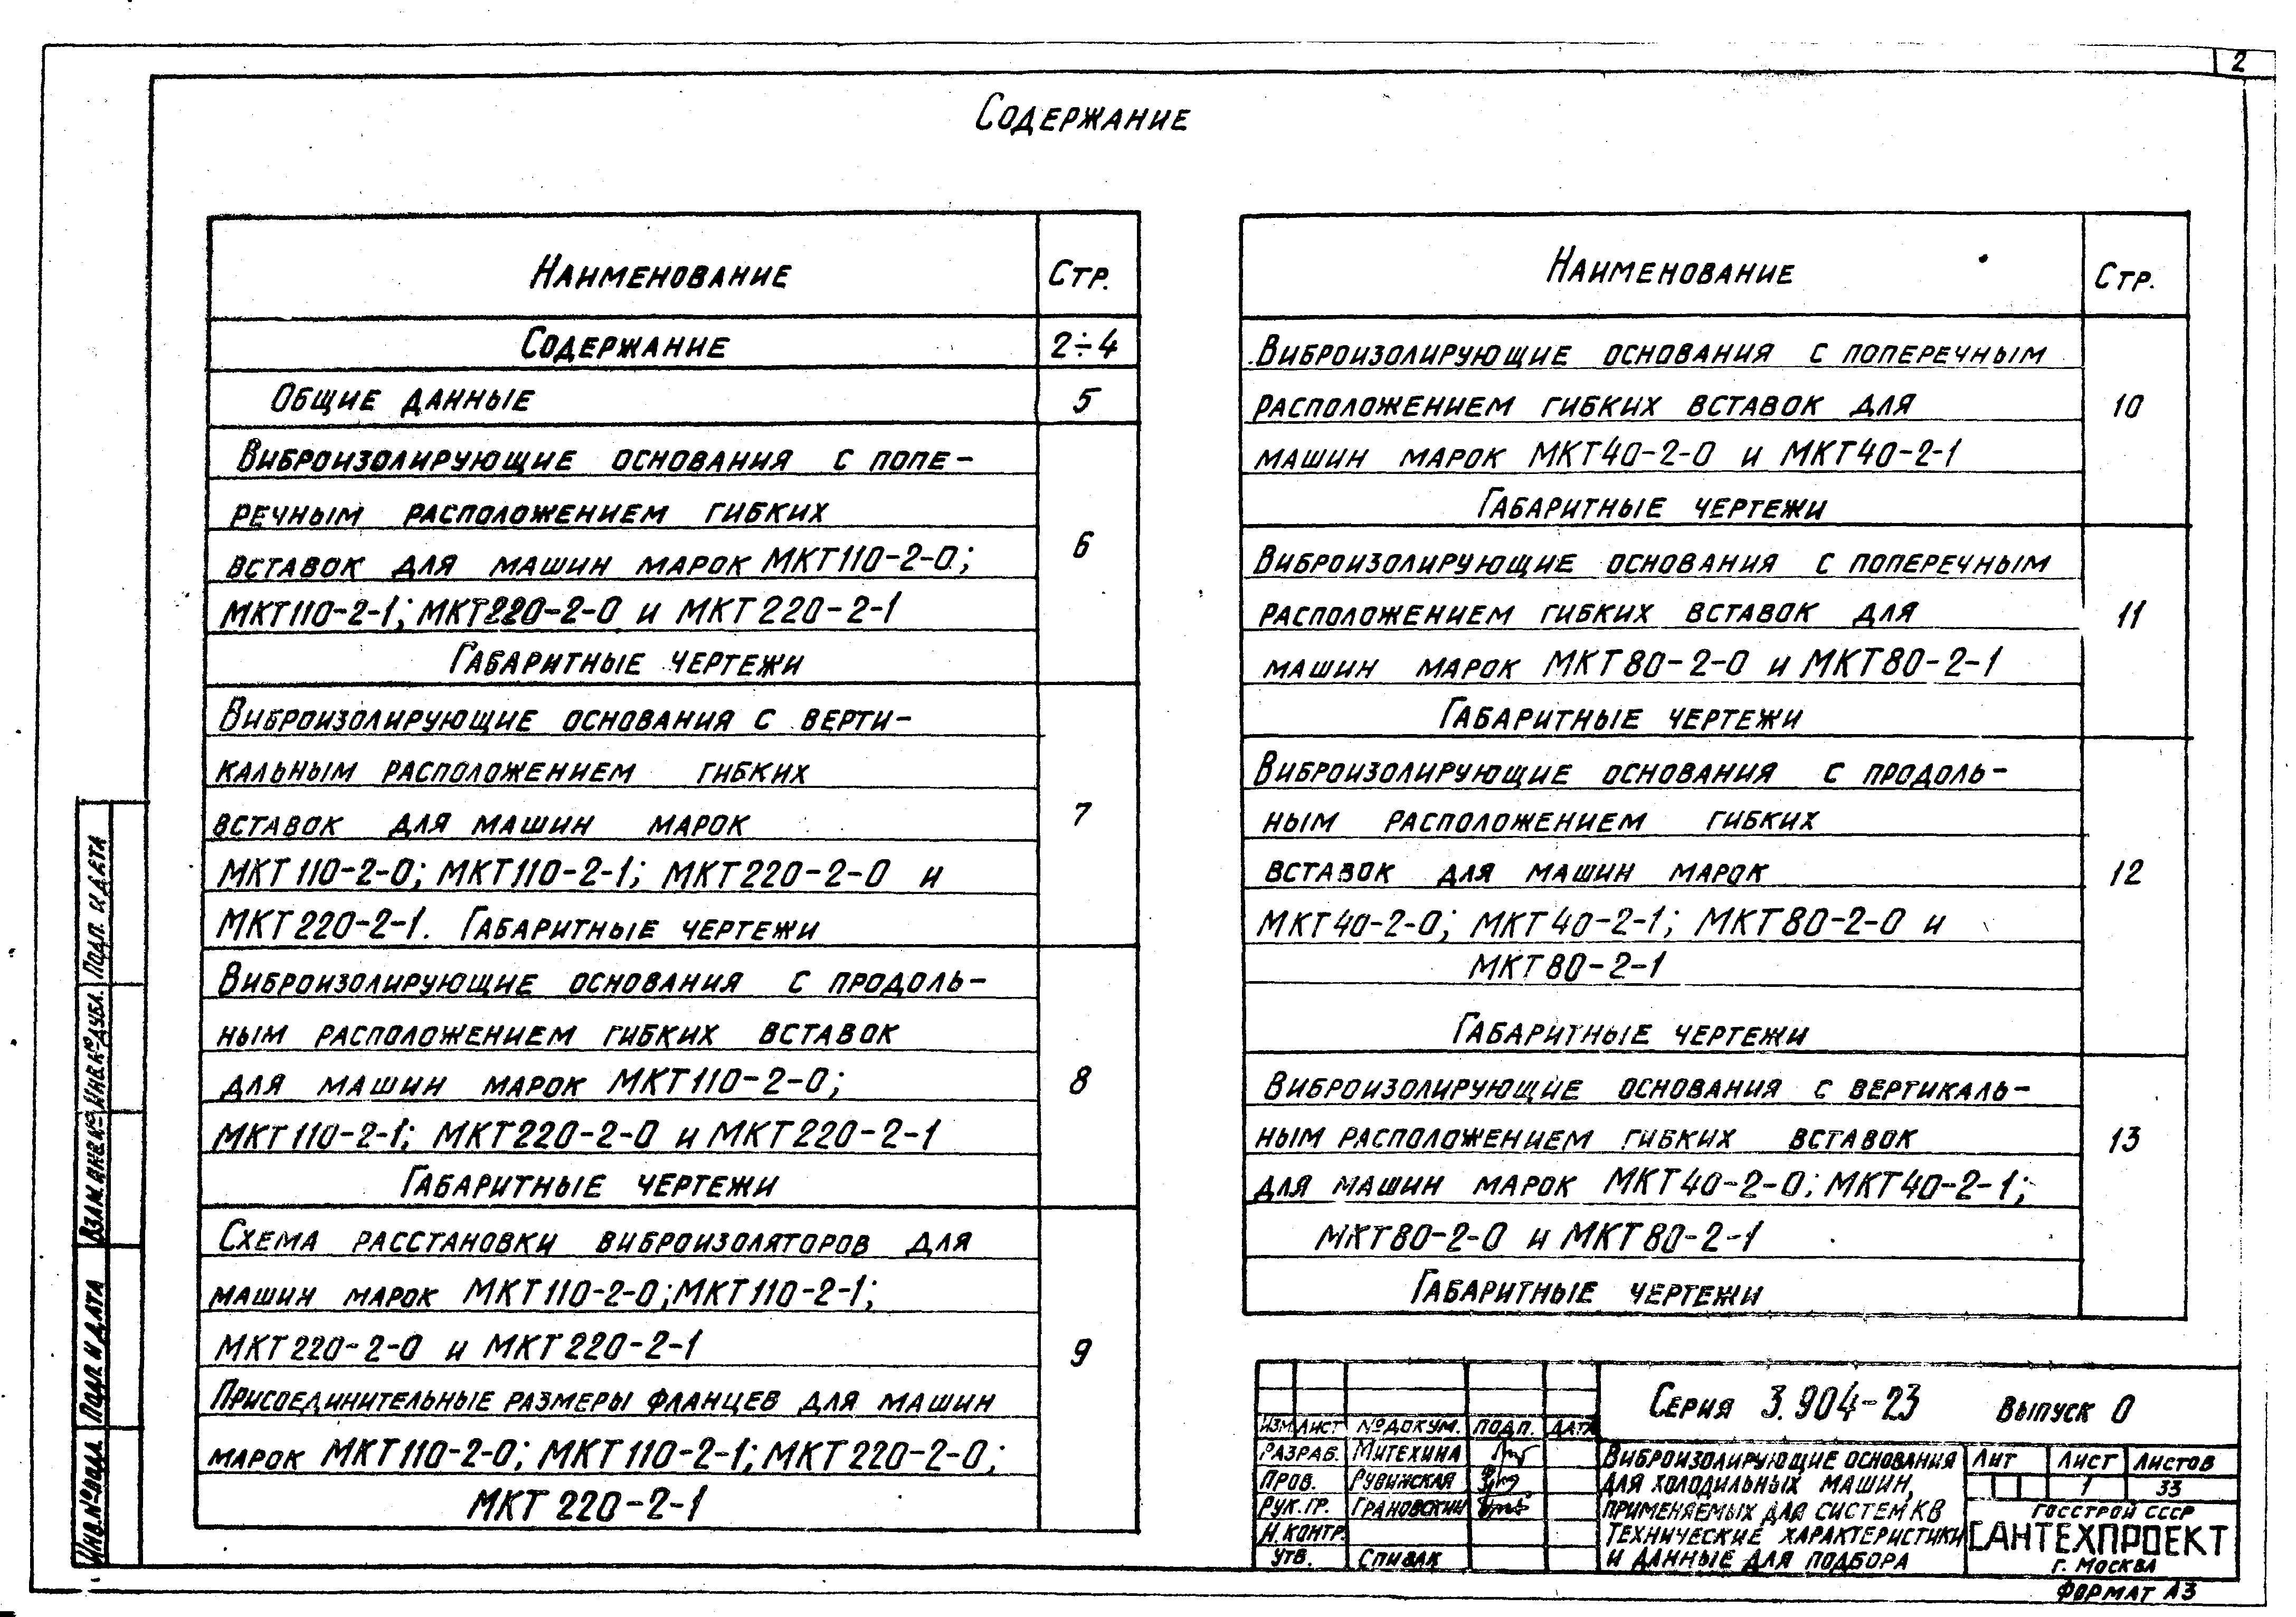 2
Содержание
Наименование Стр.
Содержание 2÷4
Общие данные 5
Виброизолирующие основания с попе-
речным расположением гибких
вставок для машин марок МКТ110-2-0;
МКТ110-2-1; МКТ220-2-0 и МКТ220-2-1
Габаритные чертежи
6
Виброизолирующие основания с верти-
кальным расположением гибких
вставок для машин марок
МКТ110-2-0; МКТ110-2-1; МКТ220-2-0 и
МКТ220-2-1. Габаритные чертежи
7
Виброизолирующие основания с продоль-
ным расположением гибких вставок
для машин марок МКТ110-2-0;
МКТ110-2-1; МКТ220-2-0 и МКТ220-2-1
Габаритные чертежи
8
Схема расстановки виброизоляторов для
машин марок МКТ110-2-0; МКТ110-2-1;
МКТ220-2-0 и МКТ220-2-1
Присоединительные размеры фланцев для машин
марок МКТ110-2-0; МКТ110-2-1; МКТ220-2-0;
МКТ220-2-1
9
Наименование Стр.
Виброизолирующие основания с поперечным
расположением гибких вставок для
машин марок МКТ40-2-0 и МКТ40-2-1
Габаритные чертежи
10
Виброизолирующие основания с поперечным
расположением гибких вставок для
машин марок МКТ80-2-0 и МКТ80-2-1
Габаритные чертежи
11
Виброизолирующие основания с продоль-
ным расположением гибких
вставок для машин марок
МКТ40-2-0; МКТ40-2-1; МКТ80-2-0 и
МКТ80-2-1
Габаритные чертежи
12
Виброизолирующие основания с вертикаль-
ным расположением гибких вставок
для машин марок МКТ40-2-0; МКТ40-2-1;
МКТ80-2-0 и МКТ80-2-1
Габаритные чертежи
13
Инв.№подл. Подп. и дата Взам.инв.№ Инв.№дубл. Подп. и дата
Серия 3.904-23 Выпуск 0
Изм. Лист № докум. Подп. Дата
Разраб. Митехина
Пров. Рубинская
Рук. гр. Грановский
Н. контр.
Утв. Спивак
Виброизолирующие основания
для холодильных машин,
применяемых для систем КВ
Технические характеристики
и данные для подбора
Лит Лист Листов
1 33
Госстрой СССР
САНТЕХПРОЕКТ
г. Москва
Формат А3